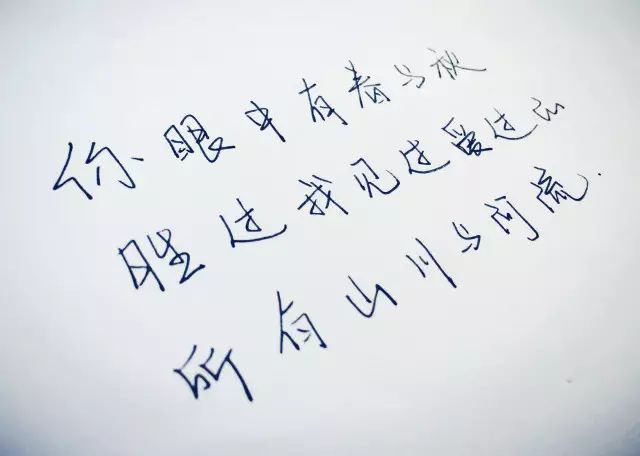 你眼中有春与秋
胜过我见过爱过的
所有山川与河流.